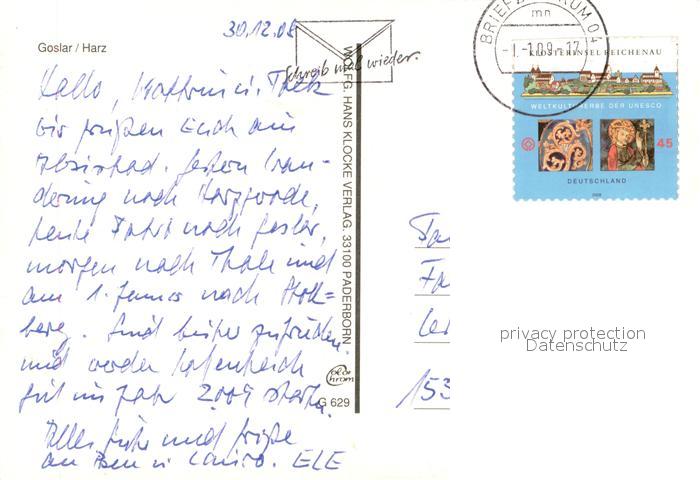 Goslar / Harz
30.12.08
Schreib mal wieder.
BRIEFZENTRUM 04
mn
-1.-1.09.-17
KLOSTERINSEL REICHENAU
WELTKULTURERBE DER UNESCO
45
DEUTSCHLAND
2008
Hallo,
wir grüßen Euch aus
Gestern Wan-
derung nach Harzgerode,
heute Fahrt nach Goslar,
morgen nach Thale und
am 1. Januar nach Stoll=
berg. Sind bisher zufrieden
und werden hoffentlich
gut ins Jahr 2009 starten.
Alles Gute und Grüße
an u. ELE
WOLFG. HANS KLOCKE VERLAG, 33100 PADERBORN
color chrom
G 629
Fa
Fa
153
privacy protection
Datenschutz